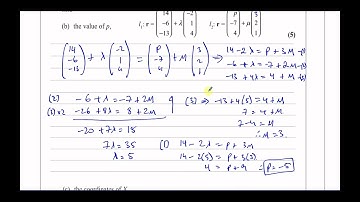 (b) the value of p,
l₁: r = (14 -6 -13) + λ(-2 1 4) l₂: r = (p -7 4) + μ(3 2 1)
(5)
(14 -6 -13) + λ(-2 1 4) = (p -7 4) + μ(3 2 1) ⇒ 14 - 2λ = p + 3μ -(1)
-6 + λ = -7 + 2μ -(2)
-13 + 4λ = 4 + μ -(3)
(2) -6 + λ = -7 + 2μ
(3) x2 -26 + 8λ = 8 + 2μ
-20 + 7λ = 15
7λ = 35
λ = 5
(3) ⇒ -13 + 4(5) = 4 + μ
7 = 4 + μ
7 - 4 = μ
∴ μ = 3
(1) 14 - 2λ = p + 3μ
14 - 2(5) = p + 3(3)
4 = p + 9 ⇒ p = -5
(c) the coordinates of X